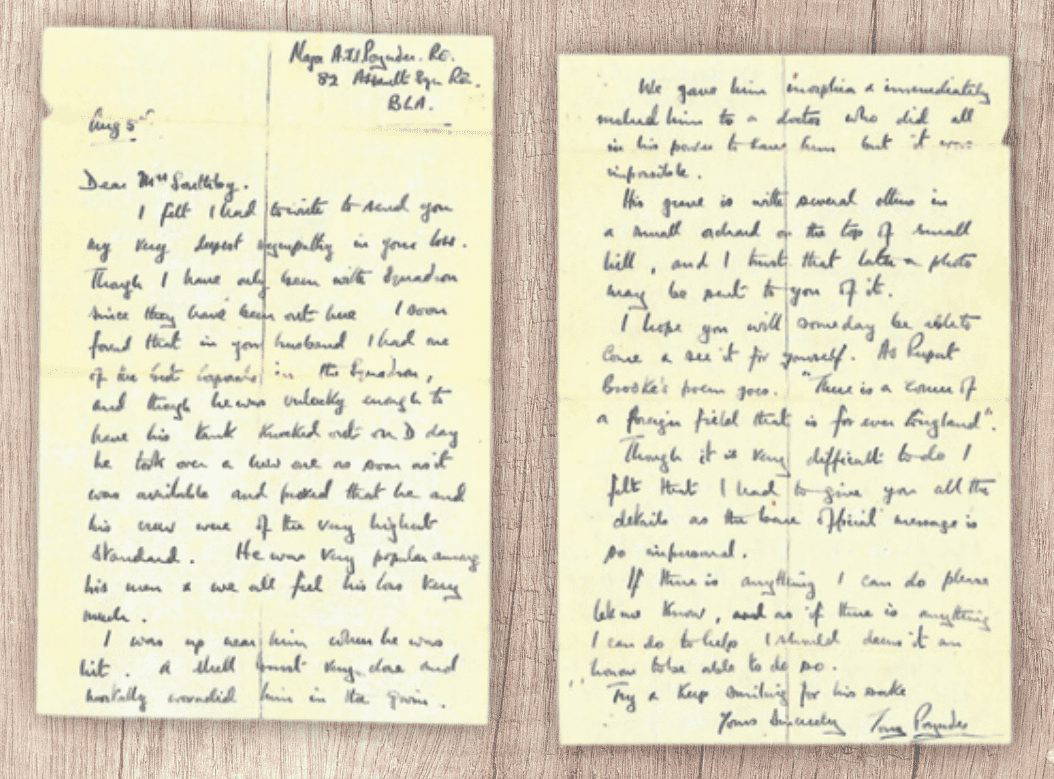 Major A.J.L Poynder. R.E.
82 Assault Sqn R.E.
B.L.A.
Aug 5th
Dear Mrs Southby.
I felt I had to write to send you
my very deepest sympathy in your loss.
Though I have only been with Squadron
since they have been out here I soon
found that in your husband I had one
of the best corporals in the Squadron,
and though he was unlucky enough to
have his tank knocked out on D day
he took over a new one as soon as it
was available and proved that he and
his crew were of the very highest
standard. He was very popular among
his men & we all feel his loss very
much.
I was up near him when he was
hit. A shell burst very close and
mortally wounded him in the groin.
We gave him morphia & immediately
rushed him to a doctor who did all
in his power to save him but it was
impossible.
His grave is with several others in
a small orchard on the top of small
hill, and I trust that later a photo
may be sent to you of it.
I hope you will someday be able to
come & see it for yourself. As Rupert
Brooke's poem goes. "There is a corner of
a foreign field that is for ever England".
Though it is very difficult to do I
felt that I had to give you all the
details as the bare official message is
so impersonal.
If there is anything I can do please
let me know, and as if there is anything
I can do to help I should deem it an
honour to be able to do so.
Try & keep smiling for his sake
Yours Sincerely Tony Poynder